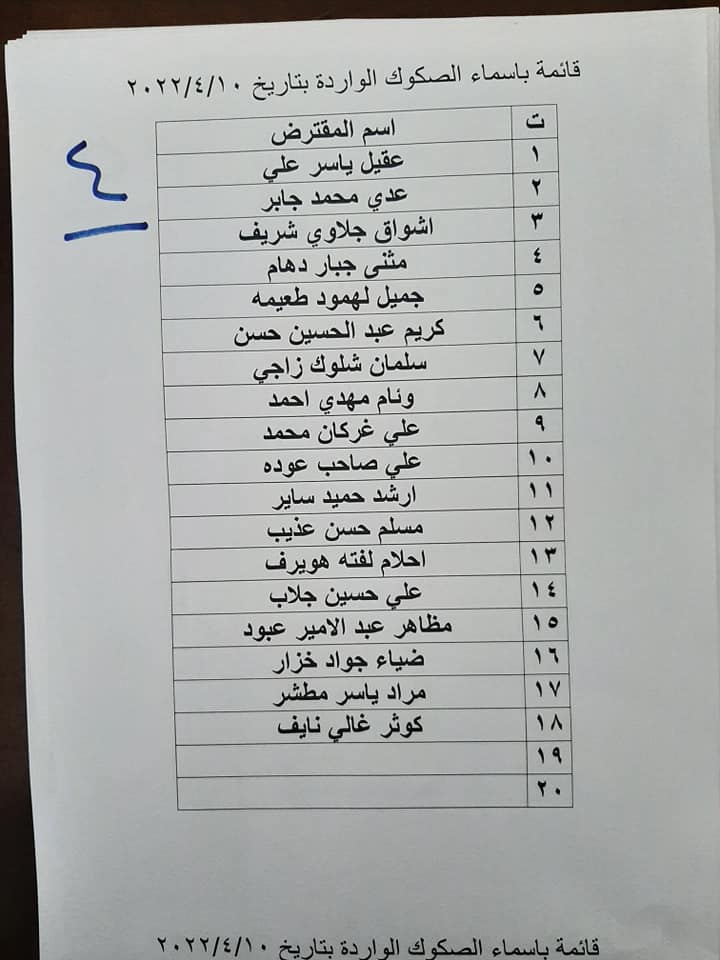 قائمة باسماء الصكوك الواردة بتاريخ ٢٠٢٢/٤/١٠
٤
ت اسم المقترض
١ عقيل ياسر علي
٢ عدي محمد جابر
٣ اشواق جلاوي شريف
٤ مثنى جبار دهام
٥ جميل لهمود طعيمه
٦ كريم عبد الحسين حسن
٧ سلمان شلوك زاجي
٨ ونام مهدي احمد
٩ علي غركان محمد
١٠ علي صاحب عوده
١١ ارشد حميد ساير
١٢ مسلم حسن عذيب
١٣ احلام لفته هويرف
١٤ علي حسين جلاب
١٥ مظاهر عبد الامير عبود
١٦ ضياء جواد خزار
١٧ مراد ياسر مطشر
١٨ كوثر غالي نايف
١٩
٢٠
قائمة باسماء الصكوك الواردة بتاريخ ٢٠٢٢/٤/١٠